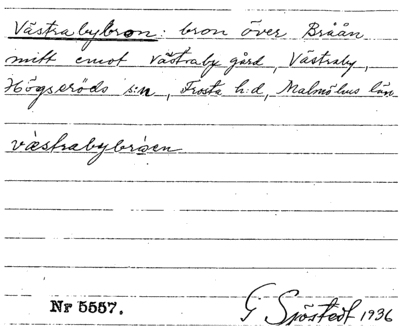 Västrabybron: bron över Bråån
mitt emot Västraby gård, Västraby,
Högseröds s:n, Frosta h:d, Malmöhus län
västrabybroen
Nr 5557.
G Sjöstedt 1936